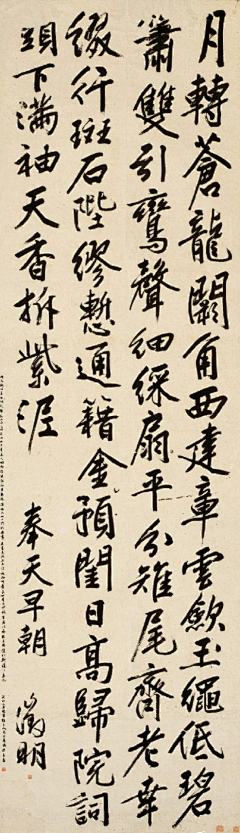 月轉蒼龍闕角西建章雲斂玉繩低碧
簫雙引鸞聲細綵扇平分雉尾齊老幸
綴行斑石陛謬慙通籍金預閨日高歸院詞
頭下滿袖天香拆紫泥 奉天早朝 徵明